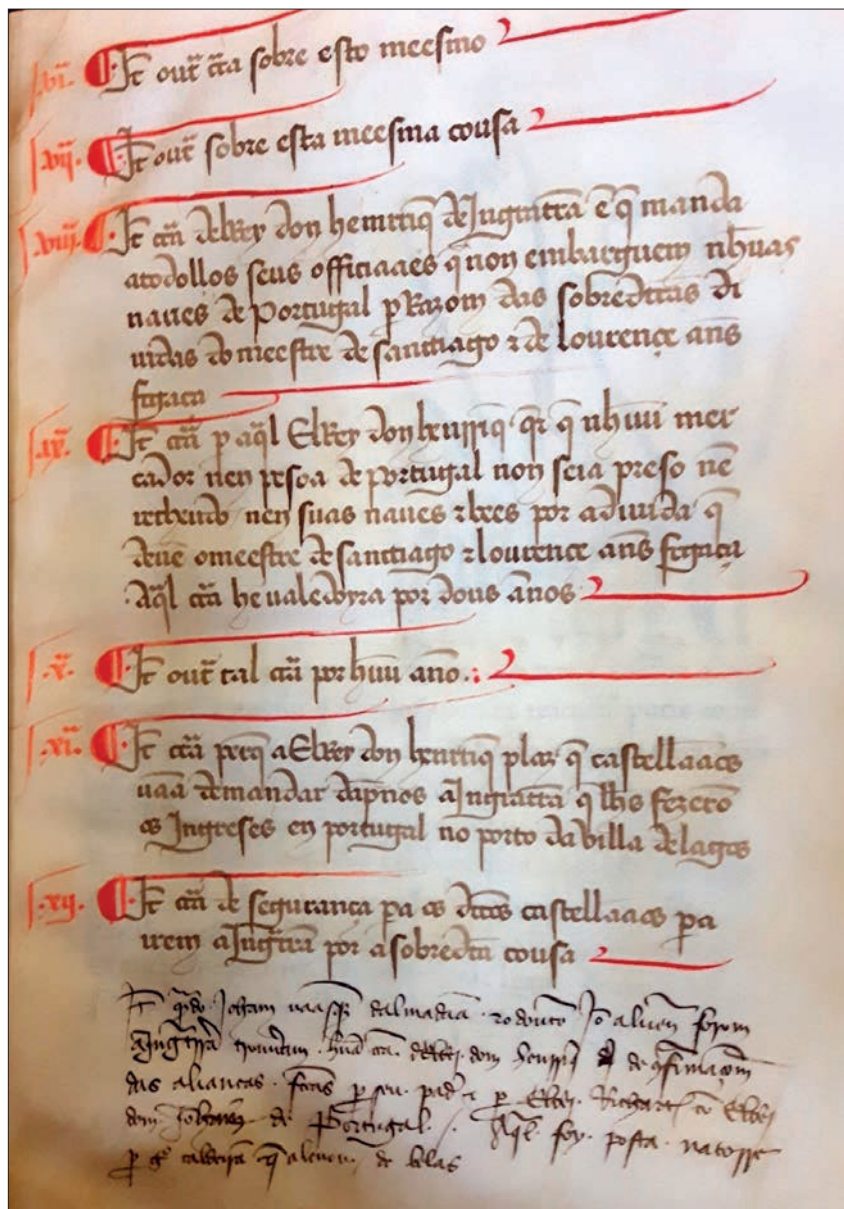 .vi. It out cta sobre esto meesmo
.vii. It out sobre esta meesma cousa
.viii. It cta delRey don henrriq de Ingratra e q manda
atodollos seus officiaaes q non embarguem nhuas
naues de Portugal p Razom das sobreditas di
uidas do meestre de santiago z de lourençe anes
fogaça
.ix. It cta p aql ElRey don henrriq qr q nhuu mer
cador nen pesoa de portugal non seia preso ne
reteudo nen suas naues z bees por adiuida q
deue omeestre de santiago z lourençe anes fogaça
Aql cta he ualedoyra por dous annos
.x. It out tal cta por huu anno
.xi. It cta pereq a ElRey don henrriq plaz q castellaaos
uaa demandar dapnos a Ingratra q lhs fezero
os Ingreses en portugal no porto da villa de lagos
.xii. It cta de segurança pa os ditos castellaaos pa
irem a Ingratra por a sobredita cousa
It qndo Joham uaasqz dalmadaa z o doutor Jo forom
a Ingratrra hua cta delRei dom henrriq de qfirmaçom
das alianças fctas p seu padre z p ElRei Richart co ElRei
dom Johane de Portugal. Aql foy posta na torre
p g caldeira q aleuou de belas